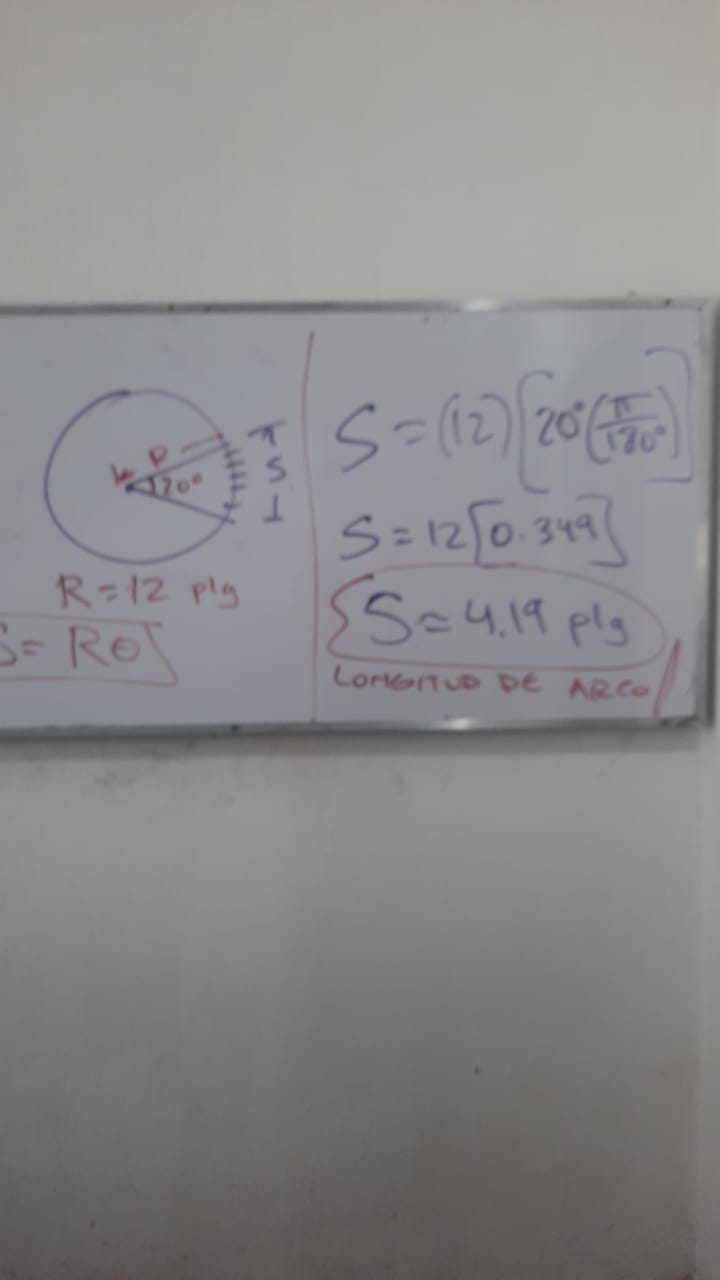 R
20°
S
R=12 plg
S= Rθ
S=(12)[20°(π/180°)]
S=12[0.349]
S=4.19 plg
LONGITUD DE ARCO